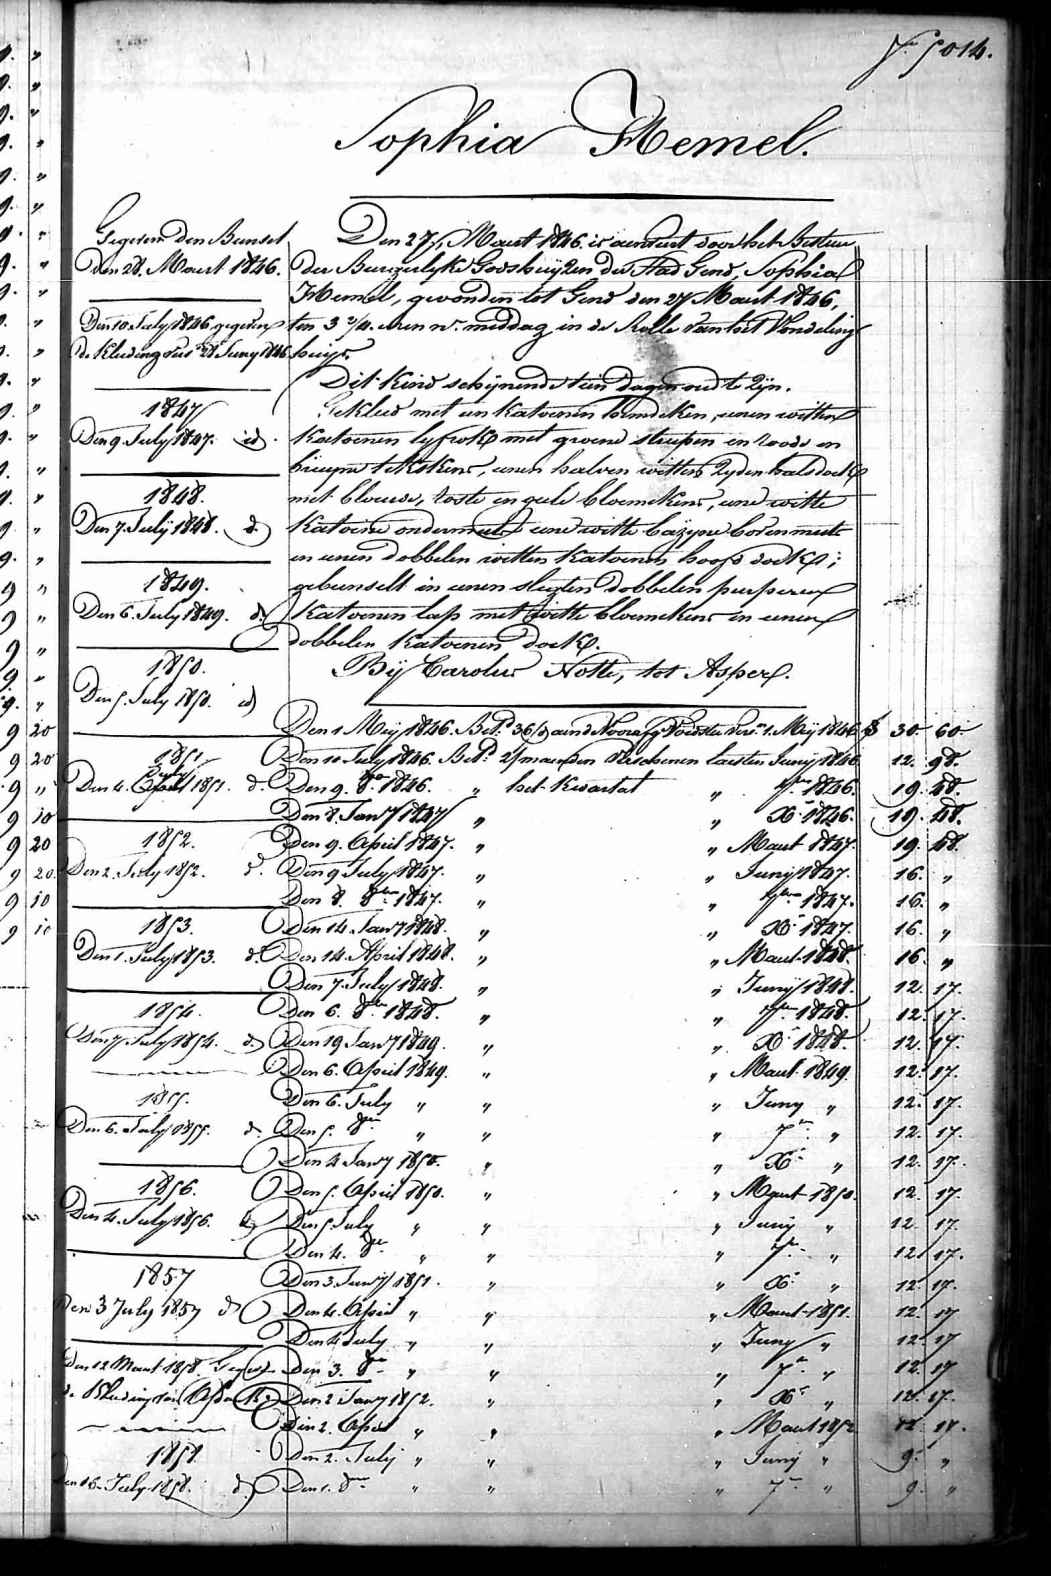 5014.
Sophia Hemel.
Gegeven den Bunsel
den 28. Maart 1846.
Den 10. July 1846 gegeven
de Kleeding van 28 Juny 1846
1847
Den 9. July 1847. id.
1848.
Den 7. July 1848. d.
1849.
Den 6. July 1849. d.
1850.
Den 5. July 1850. id
1851.
Den 4. July 1851. d.
1852.
Den 2. July 1852. d.
1853.
Den 1. July 1853. d.
1854.
Den 7. July 1854. d.
1855.
Den 6. July 1855. d.
1856.
Den 4. July 1856. d
1857
Den 3 July 1857 d
Den 12 Maart 1858
de Kleeding van
1858.
Den 16. July 1858. d.
Den 27. Maart 1846. is aenveert door het Bestier
der Burgerlyke Godshuyzen der Stad Gend, Sophia
Hemel, gevonden tot Gend den 27 Maart 1846,
ten 3 3/4. uren nr. middag in de Rolle van het Vondeling
huys
Dit Kind schynende tien dagen oud te zyn.
Gekleed met een katoenen hemdeken, eenen witten
katoenen lyfrok met groene streepen en roode en
bruyne tekskens, eenen halven witten zyden halsdoek
met blauwe, roste en gele bloemekens, eene witte
katoene ondermuts eene witte bazyne bovenmuts
en eenen dobbelen witten katoenen hoofd doek;
gebunselt in eenen slegten dobbelen purperen
katoenen lap met witte bloemekens en eenen
dobbelen katoenen doek.
Bij Carolus Notte, tot Asper.
Den 1 Meij 1846. Bet. 36/d aen de Voorafg Voedster vers. 1. Meij 1846 f 30. 60
Den 10 July 1846. Bet. 2/maenden verschenen laesten Junij 1846 12. 98.
Den 9. 8ber 1846. " het Kwartaal " 7ber 1846. 19. 48.
Den 8. Jany 1847 " " Xr 1846. 19. 48.
Den 9. April 1847. " " Maart 1847. 19. 48.
Den 9 July 1847. " " Junij 1847. 16. "
Den 8. 8ber 1847. " " 7ber 1847. 16. "
Den 14 Jany 1848. " " Xr 1847. 16. "
Den 14 April 1848. " " Maart 1848. 16. "
Den 7. July 1848. " " Junij 1848. 12. 17.
Den 6. 8ber 1848. " " 7ber 1848. 12. 17.
Den 19 Jany 1849. " " Xr 1848. 12. 17.
Den 6. April 1849. " " Maart 1849. 12. 17.
Den 6. July " " " Juny " 12. 17.
Den 5. 8ber " " " 7r " 12. 17.
Den 4 Jany 1850. " " Xr " 12. 17.
Den 5. April 1850. " " Maart 1850. 12. 17.
Den 5 July " " " Junij " 12. 17
Den 4. 8ber " " " 7r " 12. 17.
Den 3. Jany 1851. " " Xr " 12. 17.
Den 4. April " " " Maart 1851. 12. 17
Den 4 July " " " Juny " 12. 17
Den 3. 8r " " " 7r " 12. 17
Den 2 Jany 1852. " " Xr " 12. 17.
Den 2. April " " " Maart 1852 12. 17.
Den 2. July " " " Junij " 9. "
Den 1. 8r " " " 7r " 9. "